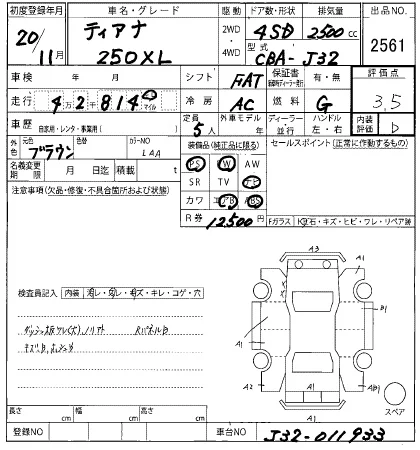 初度登録年月 車名・グレード 駆動 ドア数・形状 排気量 出品NO
20/11月 ティアナ 2WD・4WD 4SD 2500cc 2561
250XL 型式 CBA-J32
車検 年 月 シフト FAT 保証書 有・無 評価点
走行 42814 冷房 AC 燃料 G 3.5
車歴 自家用・レンタ・事業用( ) 定員 5人 外車モデル 年 ディーラー・並行 ハンドル 左・右 内装評価 D
外色 元色 ブラウン 色替 カラーNO LAA 装備品(純正品に限る) セールスポイント(正常に作動するもの)
名義変更期限 月 日迄 積載 t PS PW AW
SR TV ナビ
注意事項(欠品・修復・不具合箇所および状態) カワ エアB ABS
R券 12500円 Fガラス 石・キズ・ヒビ・ワレ・リペア跡
A3
A1 A1
検査員記入 内装 キズ・キレ・コゲ・穴
B1
A1 A1
A2 A1
A1
スペア
長さ cm 幅 cm 高さ cm
登録NO 車台NO J32-011933